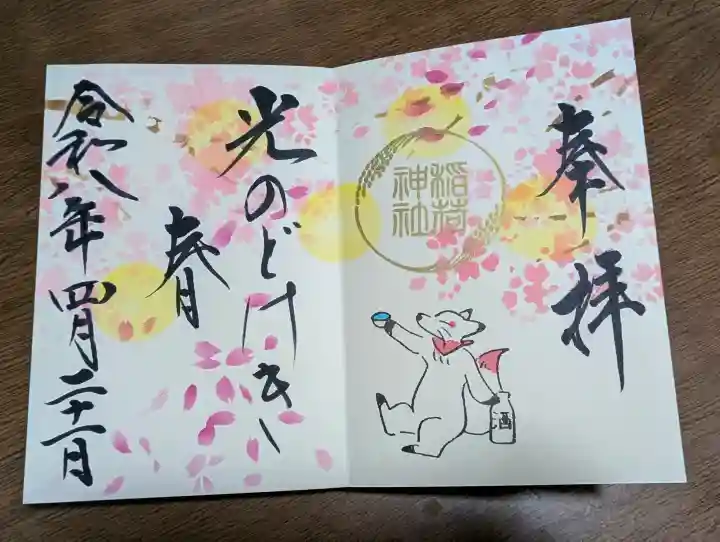 奉拝
稲荷
神社
酒
光のどけき
春
令和八年四月二十一日